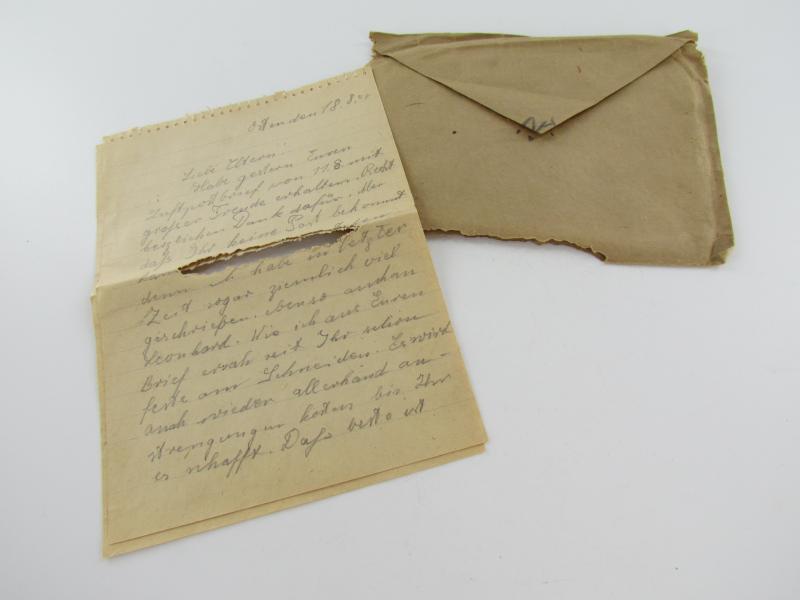 Osten den 18.8.
Liebe Eltern!
Habe gestern Euren
Luftpostbrief vom 11.8. mit
großer Freude erhalten. Recht
herzlichen Dank dafür. Aber
daß Ihr keine Post bekommt
kann
denn ich habe in letzter
Zeit sogar ziemlich viel
geschrieben. ebenso auch an
Leonhard. Wie ich aus Euren
Brief ersah seit Ihr schon
feste am Schneiden. Es wird
auch wieder allerhand an-
strengungen kosten bis Ihr
es schafft. Daß beste ist